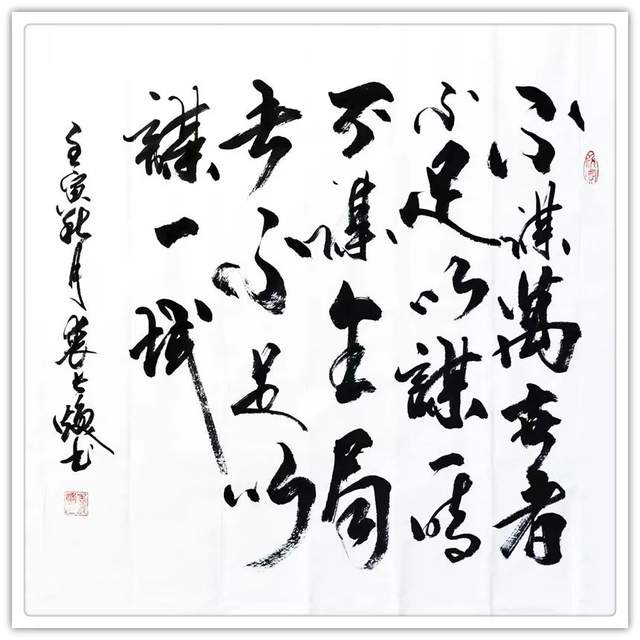 不谋萬世者
不足以謀一时
不谋全局
者不足以
謀一域
壬寅秋月